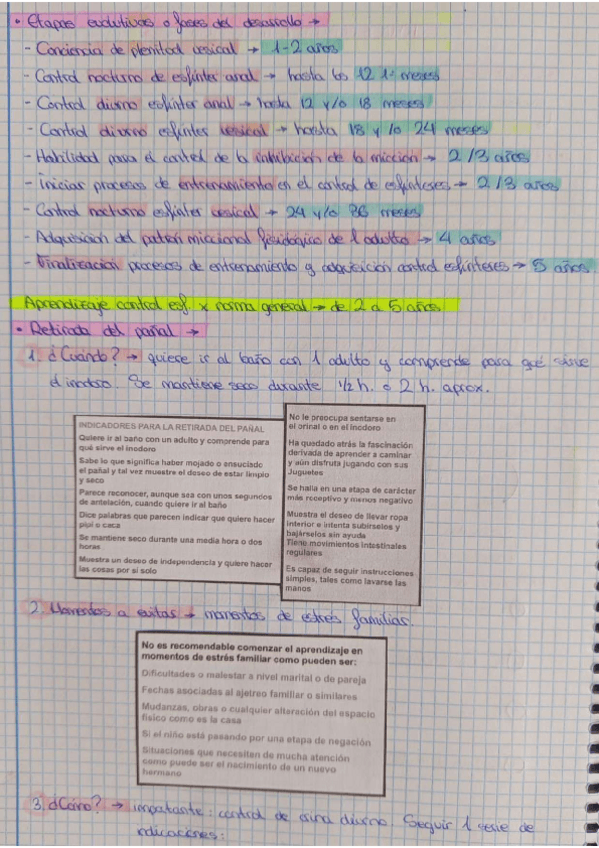 • Etapas evolutivas o fases del desarrollo →
- Conciencia de plenitud vesical → 1-2 años
- Control nocturno de esfínter anal → hasta los 12 meses
- Control diurno esfínter anal → hasta 12 y/o 18 meses
- Control diurno esfínter vesical → hasta 18 y/o 24 meses
- Habilidad para el control de la inhibición de la micción → 2/3 años
- Iniciar procesos de entrenamiento en el control de esfínteres → 2/3 años
- Control nocturno esfínter vesical → 24 y/o 36 meses
- Adquisición del patrón miccional fisiológico del adulto → 4 años
- Finalización procesos de entrenamiento y adquisición control esfínteres → 5 años.
Aprendizaje control esf. x norma general → de 2 a 5 años.
• Retirada del pañal →
1. ¿Cuándo? → quiere ir al baño con 1 adulto y comprende para qué sirve
el inodoro. Se mantiene seco durante 1/2 h. o 2 h. aprox.
INDICADORES PARA LA RETIRADA DEL PAÑAL
Quiere ir al baño con un adulto y comprende para
qué sirve el inodoro
Sabe lo que significa haber mojado o ensuciado
el pañal y tal vez muestra el deseo de estar limpio
y seco
Parece reconocer, aunque sea con unos segundos
de antelación, cuando quiere ir al baño
Dice palabras que parecen indicar que quiere hacer
pipí o caca
Se mantiene seco durante una media hora o dos
horas
Muestra un deseo de independencia y quiere hacer
las cosas por sí solo
No le preocupa sentarse en
el orinal o en el inodoro
Ha quedado atrás la fascinación
derivada de aprender a caminar
y aún disfruta jugando con sus
Juguetes
Se halla en una etapa de carácter
más receptivo y menos negativo
Muestra el deseo de llevar ropa
interior e intenta subírselos y
bajárselos sin ayuda
Tiene movimientos intestinales
regulares
Es capaz de seguir instrucciones
simples, tales como lavarse las
manos
2. Momentos a evitar → momentos de estrés familiar.
No es recomendable comenzar el aprendizaje en
momentos de estrés familiar como pueden ser:
Dificultades o malestar a nivel marital o de pareja
Fechas asociadas al ajetreo familiar o similares
Mudanzas, obras o cualquier alteración del espacio
físico como es la casa
Si el niño está pasando por una etapa de negación
Situaciones que necesiten de mucha atención
como puede ser el nacimiento de un nuevo
hermano
3. ¿Cómo? → importante: control de orina diurno. Seguir 1 serie de
indicaciones: